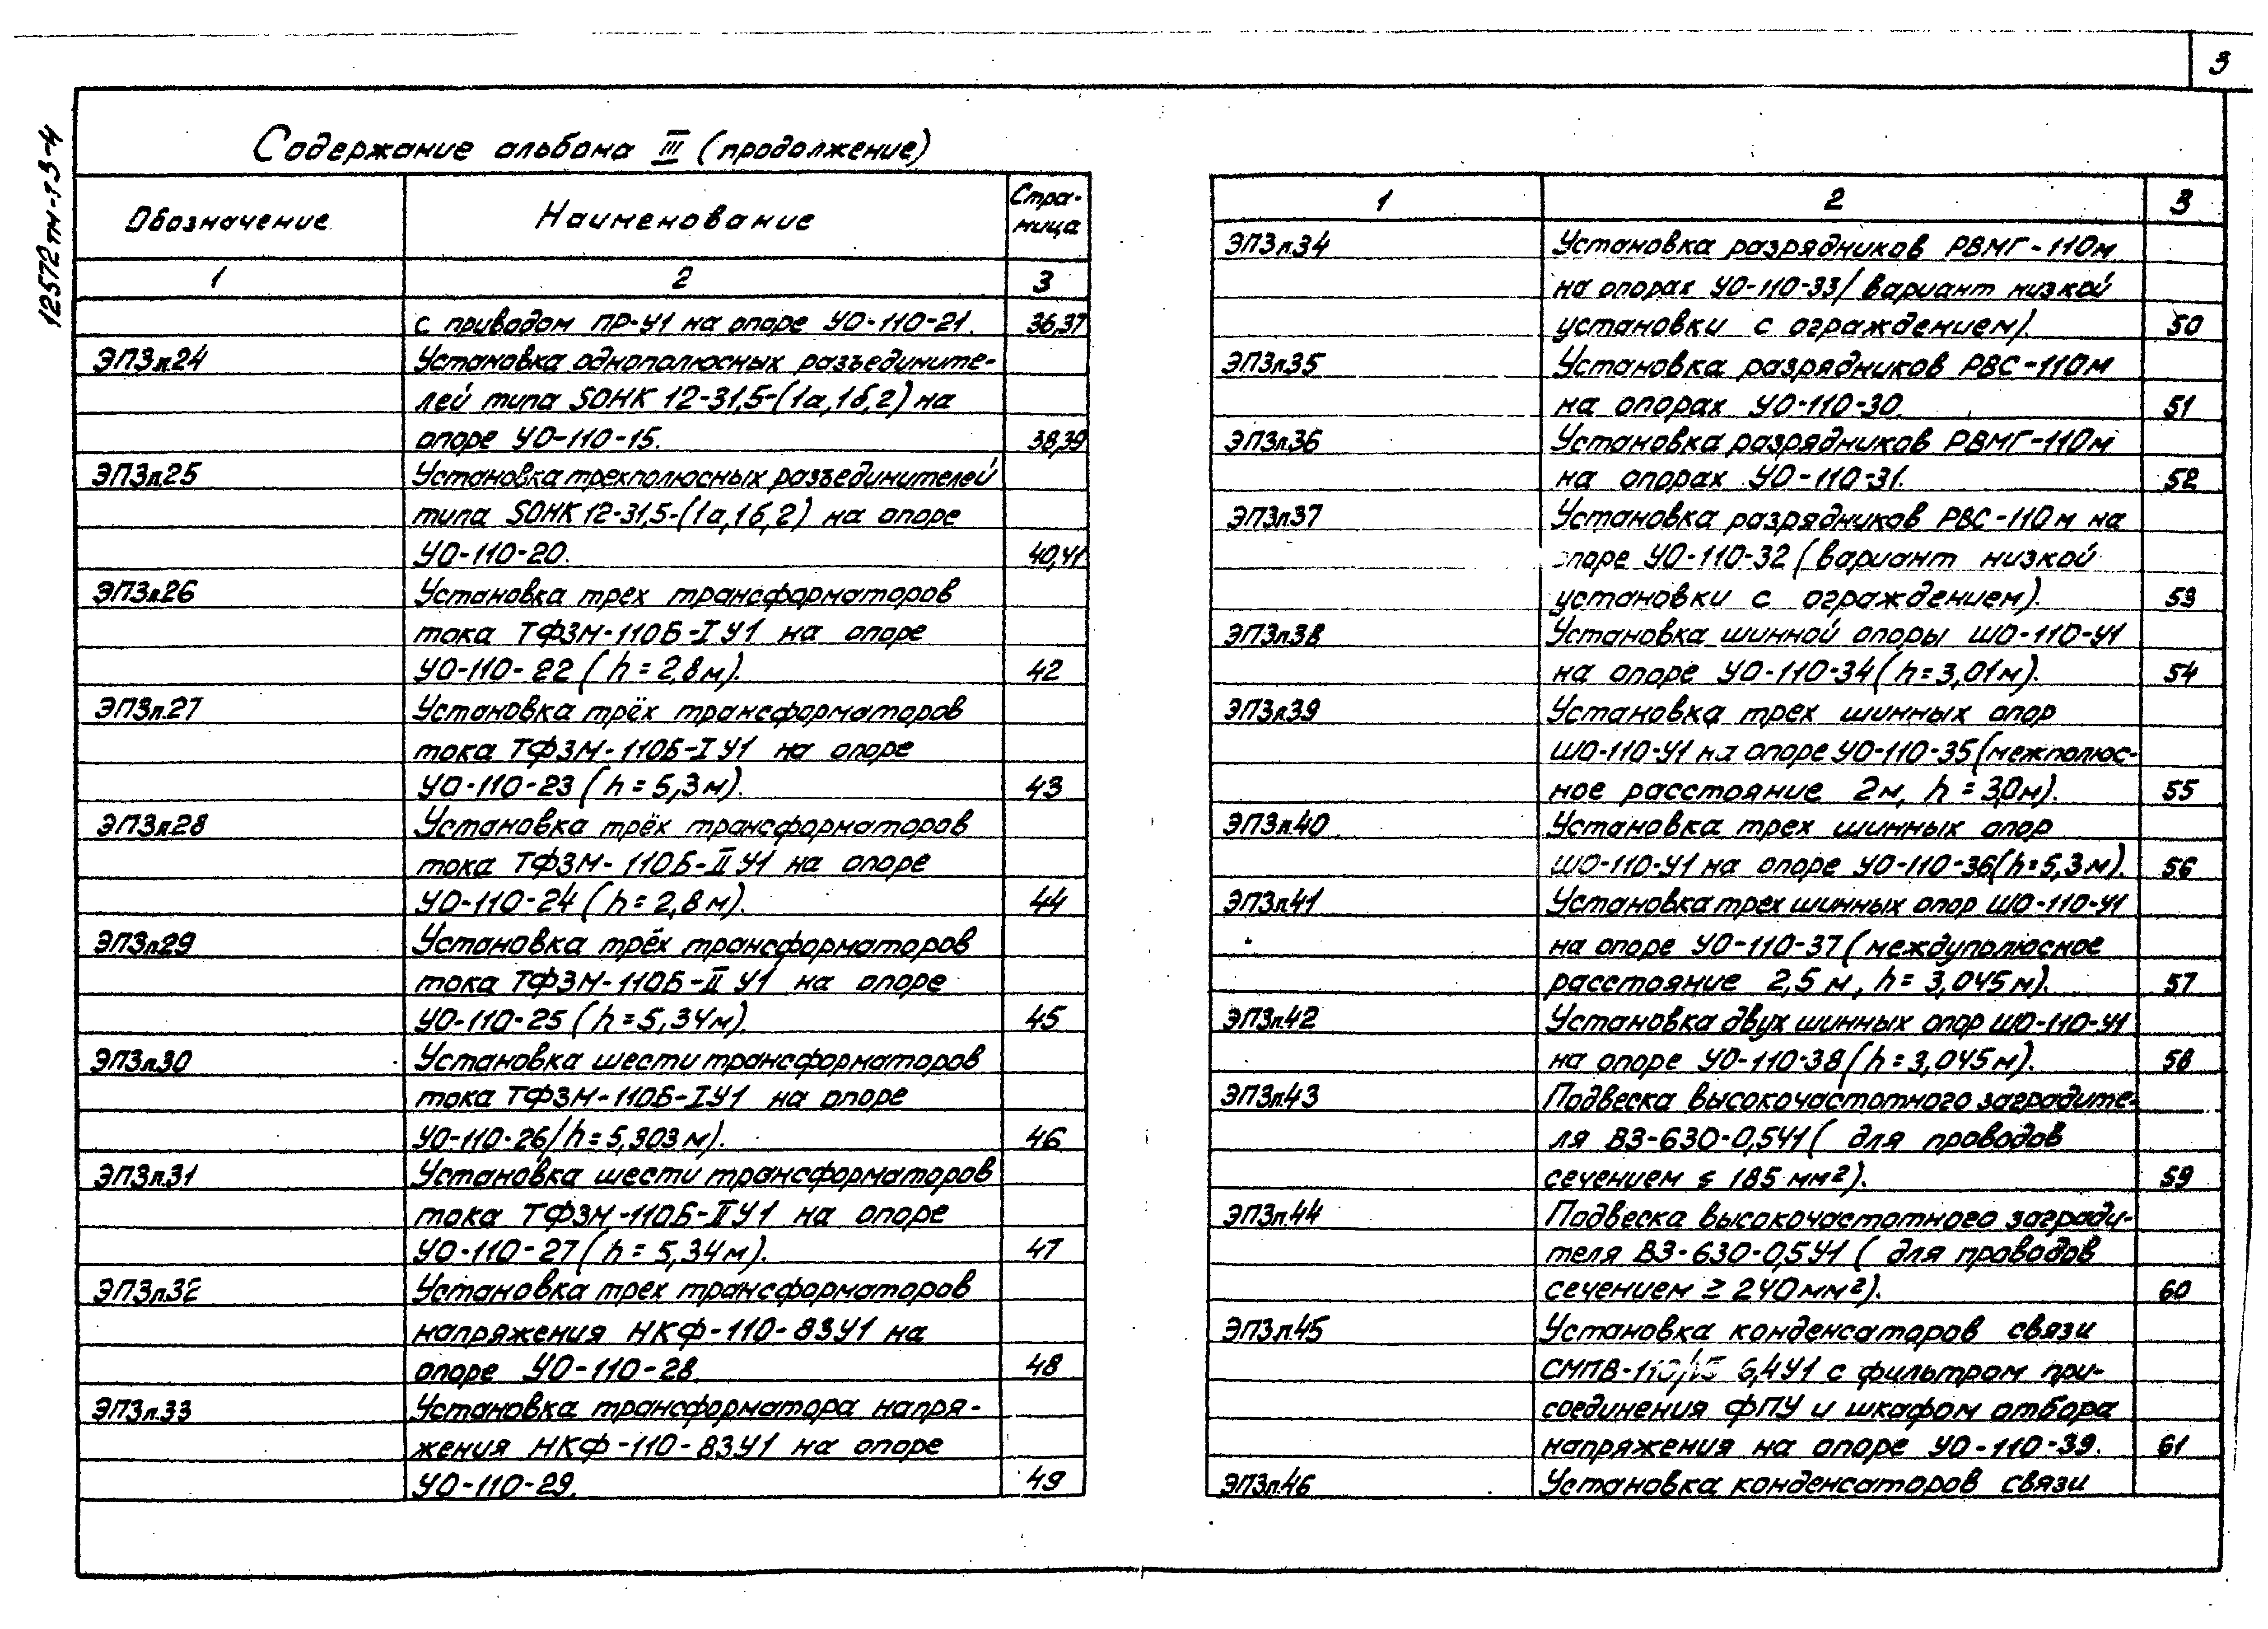 3
12572тм-т3-4
Содержание альбома III (продолжение)
Обозначение Наименование Стра-
ница
1 2 3
с приводом ПР-У1 на опоре УО-110-21. 36,37
ЭП3л24 Установка однополюсных разъедините-
лей типа SOHK 12-31,5-(1а,1б,2) на
опоре УО-110-15. 38,39
ЭП3л25 Установка трехполюсных разъединителей
типа SOHK 12-31,5-(1а,1б,2) на опоре
УО-110-20. 40,41
ЭП3л26 Установка трех трансформаторов
тока ТФЗМ-110Б-I У1 на опоре
УО-110-22 (h=2,8м). 42
ЭП3л.27 Установка трёх трансформаторов
тока ТФЗМ-110Б-I У1 на опоре
УО-110-23 (h=5,3м). 43
ЭП3л28 Установка трёх трансформаторов
тока ТФЗМ-110Б-II У1 на опоре
УО-110-24 (h=2,8м). 44
ЭП3л29 Установка трёх трансформаторов
тока ТФЗМ-110Б-II У1 на опоре
УО-110-25 (h=5,34м). 45
ЭП3л30 Установка шести трансформаторов
тока ТФЗМ-110Б-IУ1 на опоре
УО-110-26 (h=5,303м). 46
ЭП3л31 Установка шести трансформаторов
тока ТФЗМ-110Б-IIУ1 на опоре
УО-110-27 (h=5,34м). 47
ЭП3л32 Установка трех трансформаторов
напряжения НКФ-110-83У1 на
опоре УО-110-28. 48
ЭП3л.33 Установка трансформатора напря-
жения НКФ-110-83У1 на опоре
УО-110-29. 49
1 2 3
ЭП3л.34 Установка разрядников РВМГ-110м
на опорах УО-110-33 (вариант низкой
установки с ограждением). 50
ЭП3л35 Установка разрядников РВС-110м
на опорах УО-110-30. 51
ЭП3л36 Установка разрядников РВМГ-110м
на опорах УО-110-31. 52
ЭП3л37 Установка разрядников РВС-110м на
опоре УО-110-32 (вариант низкой
установки с ограждением). 53
ЭП3л38 Установка шинной опоры ШО-110-У1
на опоре УО-110-34 (h=3,01м). 54
ЭП3л39 Установка трех шинных опор
ШО-110-У1 на опоре УО-110-35 (межполюс-
ное расстояние 2м, h=3,0м). 55
ЭП3л.40 Установка трех шинных опор
ШО-110-У1 на опоре УО-110-36(h=5,3м). 56
ЭП3л41 Установка трех шинных опор ШО-110-У1
на опоре УО-110-37 (междуполюсное
расстояние 2,5м, h=3,045м). 57
ЭП3л.42 Установка двух шинных опор ШО-110-У1
на опоре УО-110-38 (h=3,045м). 58
ЭП3л43 Подвеска высокочастотного заградите-
ля ВЗ-630-0,5У1 ( для проводов
сечением ≤ 185 мм²). 59
ЭП3л.44 Подвеска высокочастотного загради-
теля ВЗ-630-0,5У1 ( для проводов
сечением ≥ 240мм²). 60
ЭП3л.45 Установка конденсаторов связи
6,4У1 с фильтром при-
соединения ФПУ и шкафом отбора
напряжения на опоре УО-110-39. 61
ЭП3л.46 Установка конденсаторов связи